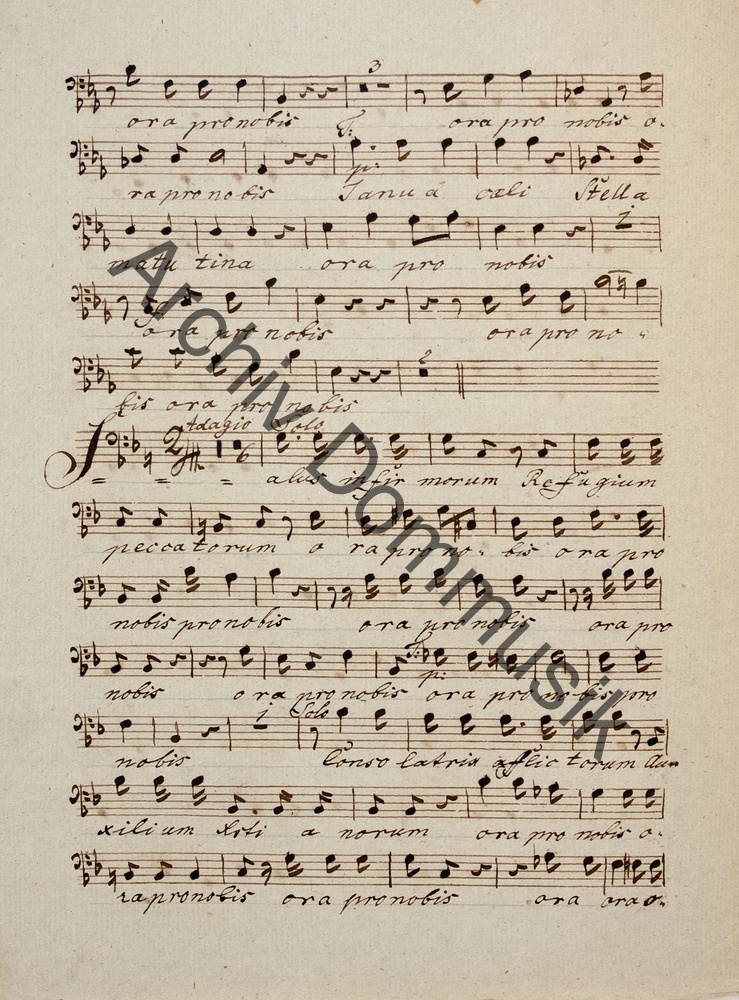 3
ora pro nobis T: ora pro nobis o-
p:
ra pro nobis Janua cœli Stella
1
matutina ora pro nobis
ora pro nobis ora pro no-
2
bis ora pro nobis
Adagio Solo
2/4 16
Salus infirmorum Refugium
peccatorum o ra pro no- bis ora pro
nobis pro nobis ora pro nobis ora pro
T:
p:
nobis ora pro nobis ora pro nobis pro
1 Solo
nobis Consolatrix afflictorum Aux-
xilium Xsti a norum ora pro nobis o-
ra pro nobis ora pro nobis ora ora o-
Archiv Dommusik